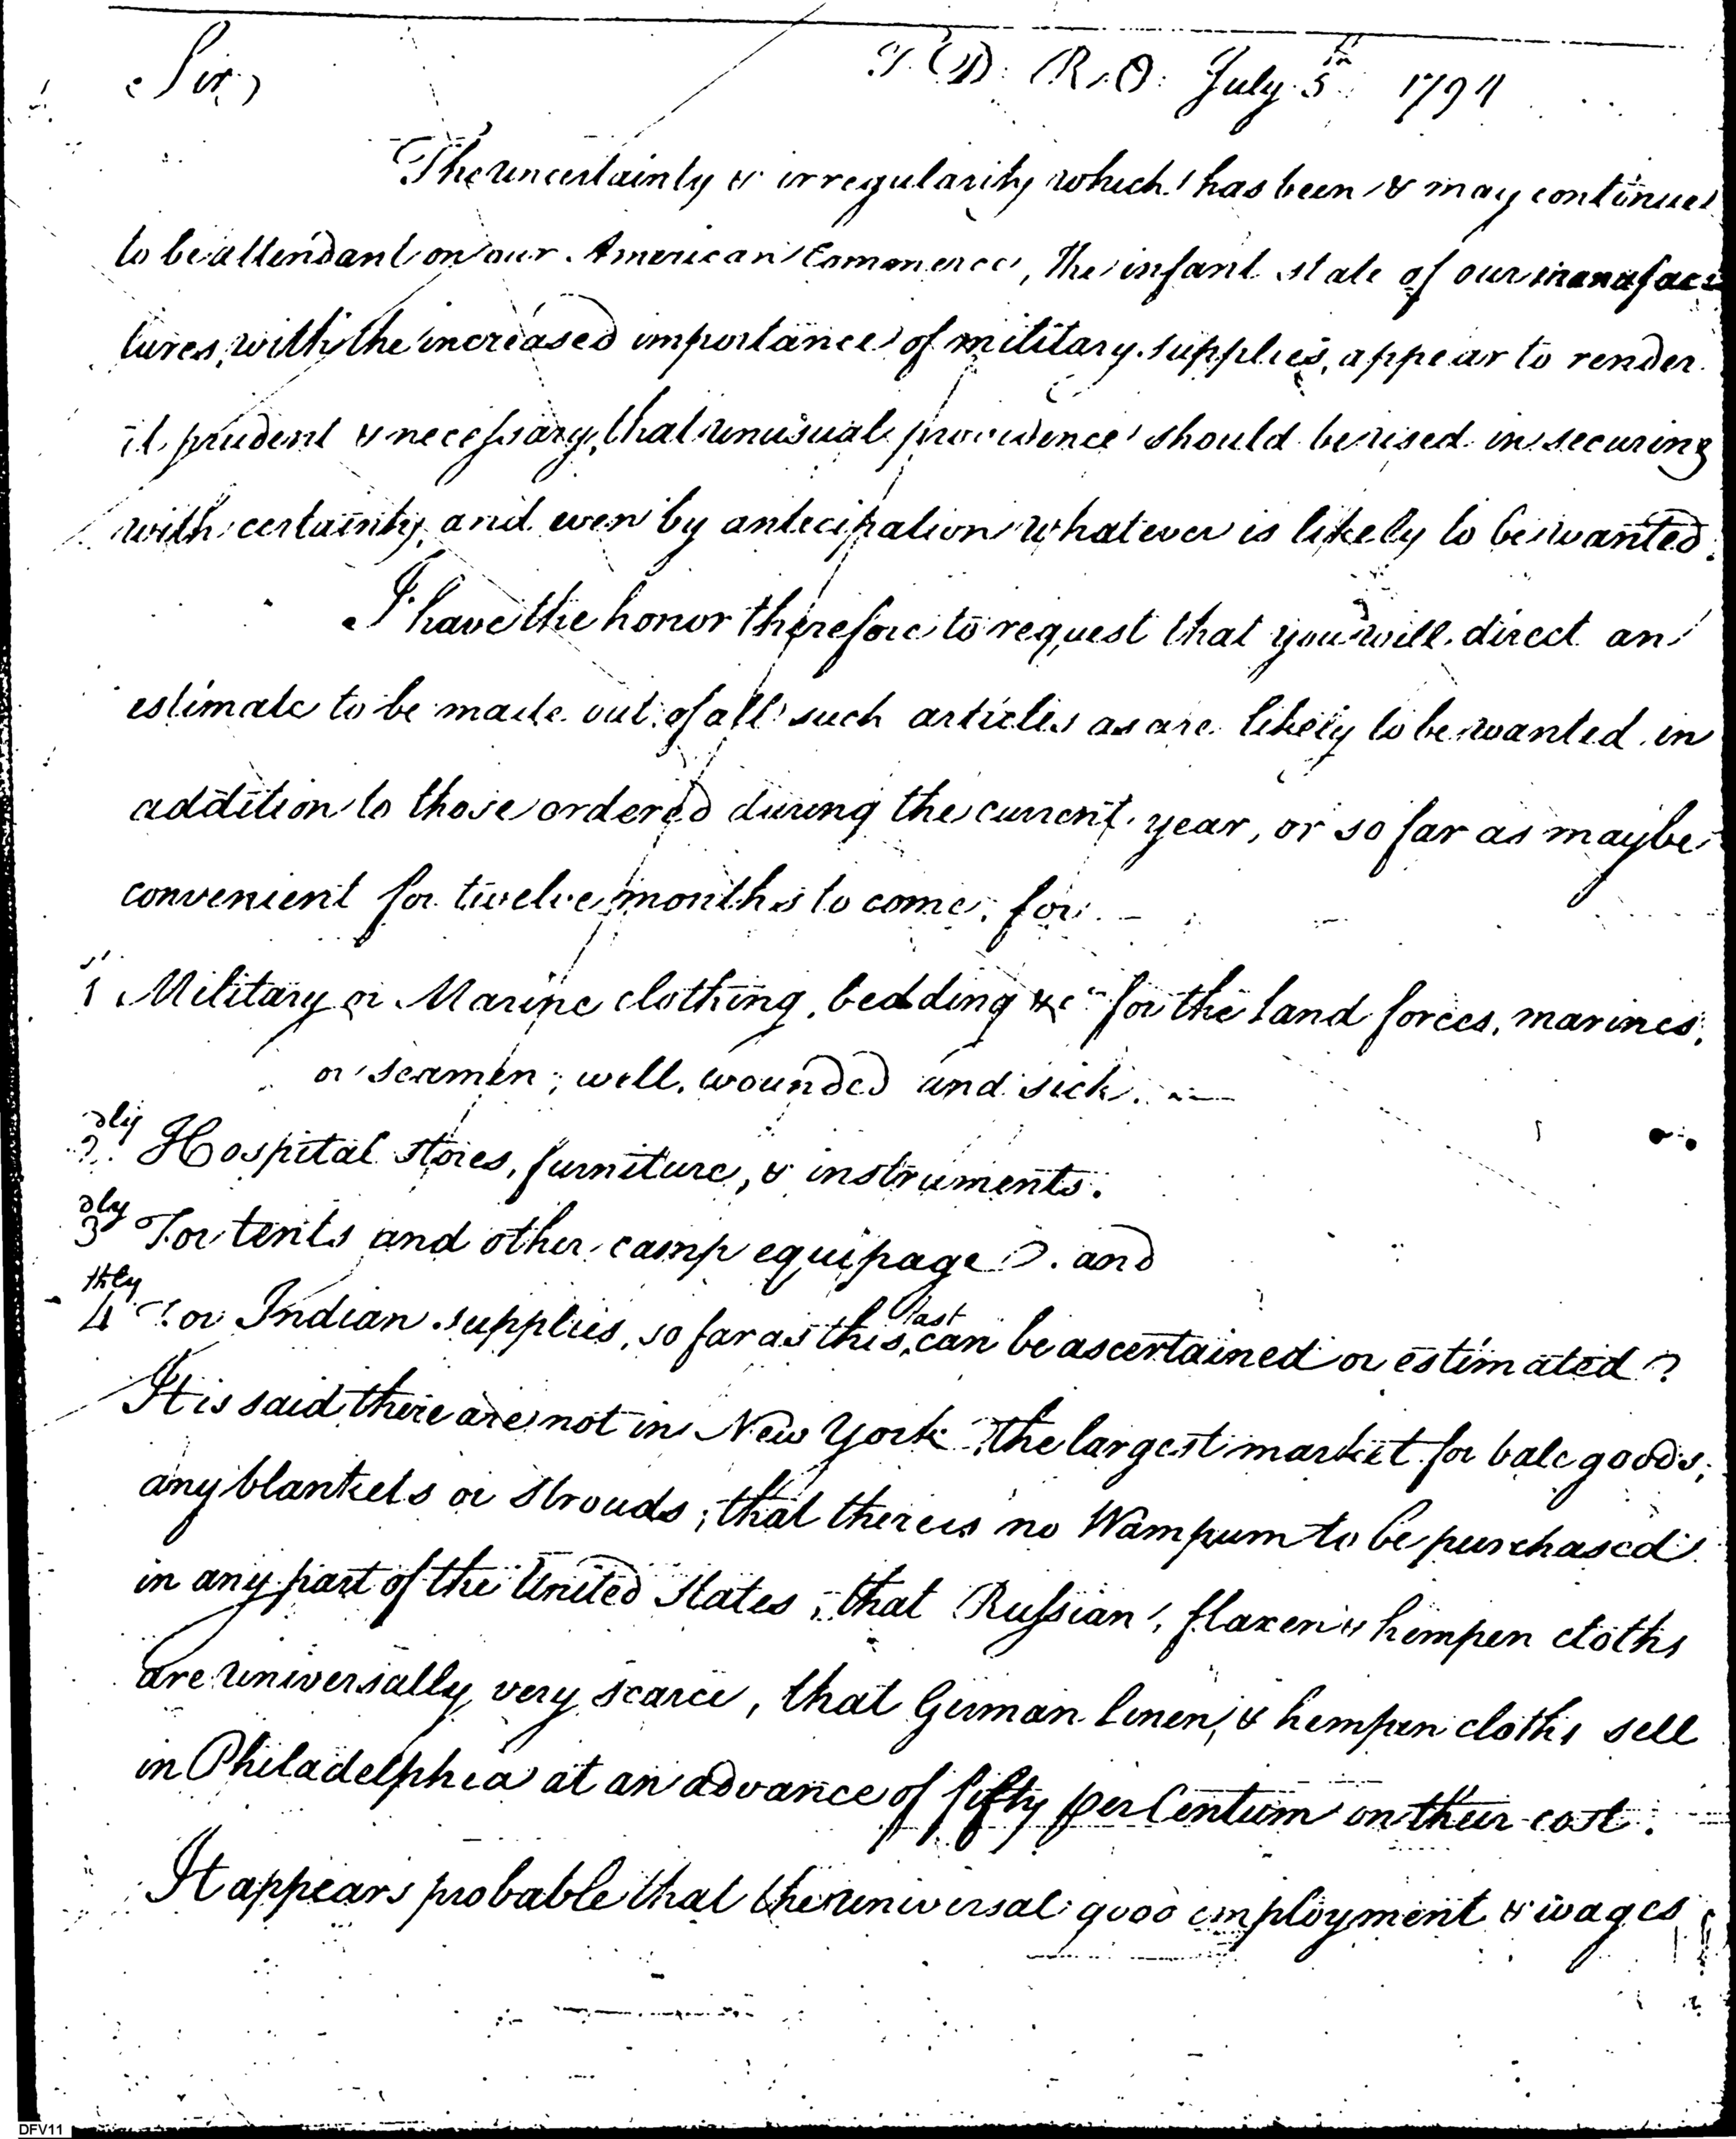 Sir,
T. D: R. O: July 5th 1794
The uncertainty & irregularity which has been & may continue
to be attendant on our American Commerce, the infant state of our manufac
tures, with the increased importance of military supplies, appear to render
it prudent & necessary, that unusual providence should be used in securing
with certainty, and even by antecipation whatever is likely to be wanted.
I have the honor therefore to request that you will direct an
estimate to be made out of all such articles as are likely to be wanted in
addition to those ordered during the current year, or so far as may be
convenient for twelve months to come, for
1st Military or Marine clothing, bedding &c for the land forces, marines,
or seamen, well, wounded and sick.
2dly Hospital stores, furniture, & instruments.
3dly For tents and other camp equipage. and
4thly For Indian supplies, so far as this last can be ascertained or estimated?
It is said there are not in New York, the largest market for bale goods,
any blankets or Strouds; that there is no Wampum to be purchased
in any part of the United States, that Russian, flaxen & hempen cloths
are universally very scarce, that German linen, & hempen cloths sell
in Philadelphia at an advance of fifty per Centum on their cost.
It appears probable that the universal good employment & wages
DFV11